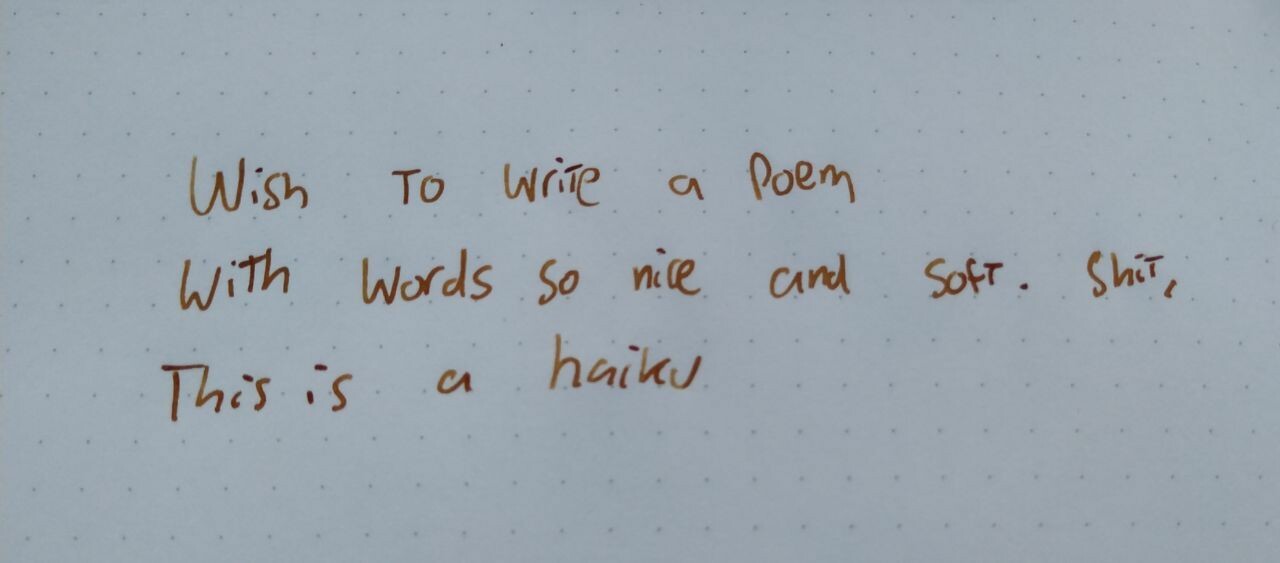 Wish to write a Poem
With words so nice and soft. Shit,
This is a haiku